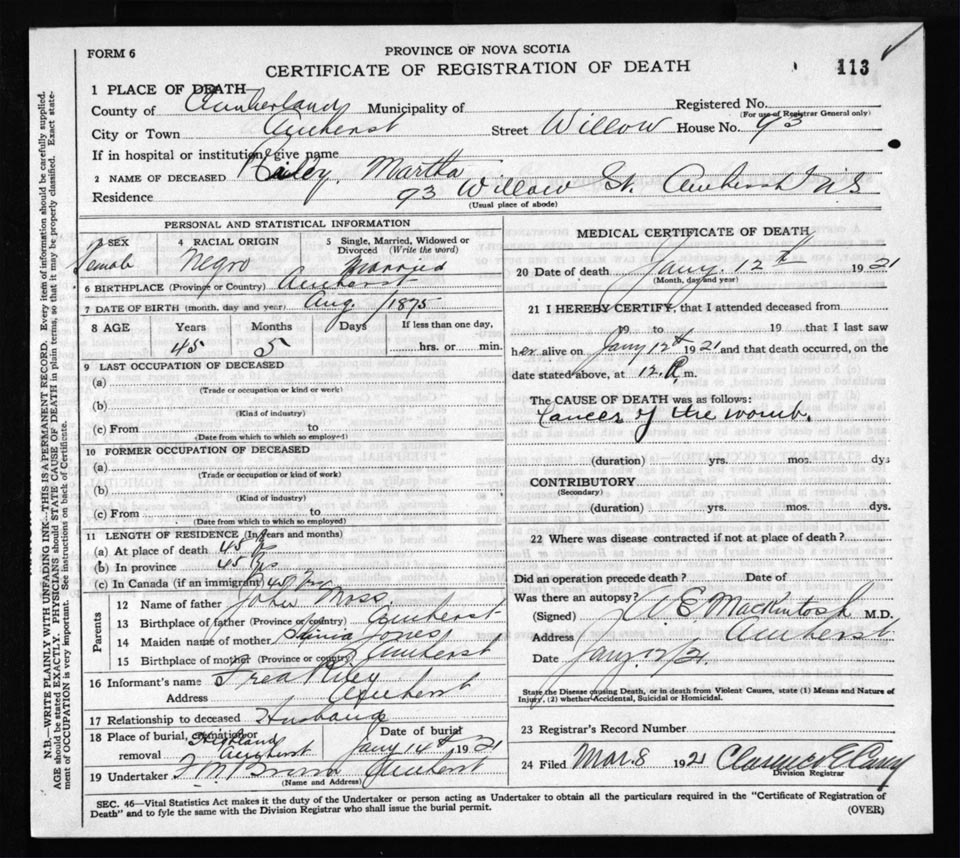 FORM 6
PROVINCE OF NOVA SCOTIA
CERTIFICATE OF REGISTRATION OF DEATH
113
1 PLACE OF DEATH—
County of Cumberland Municipality of
Registered No.
(For use of Registrar General only)
City or Town Amherst Street Willow House No. 93
If in hospital or institution, give name
2 NAME OF DECEASED Riley, Martha
Residence 93 Willow St. Amherst NS
(Usual place of abode)
PERSONAL AND STATISTICAL INFORMATION
3 SEX Female
4 RACIAL ORIGIN Negro
5 Single, Married, Widowed or Divorced (Write the word) Married
6 BIRTHPLACE (Province or Country) Amherst
7 DATE OF BIRTH (month, day and year) Aug. 1875
8 AGE Years 45 Months 5 Days If less than one day, hrs. or min.
9 LAST OCCUPATION OF DECEASED
(a)
(Trade or occupation or kind or work)
(b)
(Kind of industry)
(c) From to
(Date from which to which so employed)
10 FORMER OCCUPATION OF DECEASED
(a)
(Trade or occupation or kind of work)
(b)
(Kind of industry)
(c) From to
(Date from which to which so employed)
11 LENGTH OF RESIDENCE (In years and months)
(a) At place of death 45 yrs
(b) In province 45 yrs
(c) In Canada (if an immigrant) 45 yrs
Parents
12 Name of father John Moss
13 Birthplace of father (Province or country) Amherst
14 Maiden name of mother Jones
15 Birthplace of mother (Province or country) Amherst
16 Informant's name Fred Riley
Address Amherst
17 Relationship to deceased Husband
18 Place of burial, cremation or removal Highland Amherst
Date of burial Jany 14th 1921
19 Undertaker Amherst
(Name and Address)
MEDICAL CERTIFICATE OF DEATH
20 Date of death Jany. 12th 1921
(Month, day and year)
21 I HEREBY CERTIFY, that I attended deceased from
19 to 19 that I last saw
her alive on Jany 12th 1921 and that death occurred, on the
date stated above, at 12. P m.
The CAUSE OF DEATH was as follows:
Cancer of the womb.
(duration) yrs. mos. dys
CONTRIBUTORY
(Secondary)
(duration) yrs. mos. dys.
22 Where was disease contracted if not at place of death?
Did an operation precede death? Date of
Was there an autopsy?
(Signed) A. E. Mackintosh M.D.
Address Amherst
Date Jany 12/21
State the Disease causing Death, or in death from Violent Causes, state (1) Means and Nature of
Injury, (2) whether Accidental, Suicidal or Homicidal.
23 Registrar's Record Number
24 Filed Mar. 8 1921 Clarence
Division Registrar
SEC. 46—Vital Statistics Act makes it the duty of the Undertaker or person acting as Undertaker to obtain all the particulars required in the "Certificate of Registration of
Death" and to fyle the same with the Division Registrar who shall issue the burial permit.
(OVER)
N.B.—WRITE PLAINLY WITH UNFADING INK—THIS IS A PERMANENT RECORD. Every item of information should be carefully supplied.
AGE should be stated EXACTLY. PHYSICIANS should STATE CAUSE OF DEATH in plain terms, so that it may be properly classified. Exact state-
ment of OCCUPATION is very important. See instructions on back of Certificate.